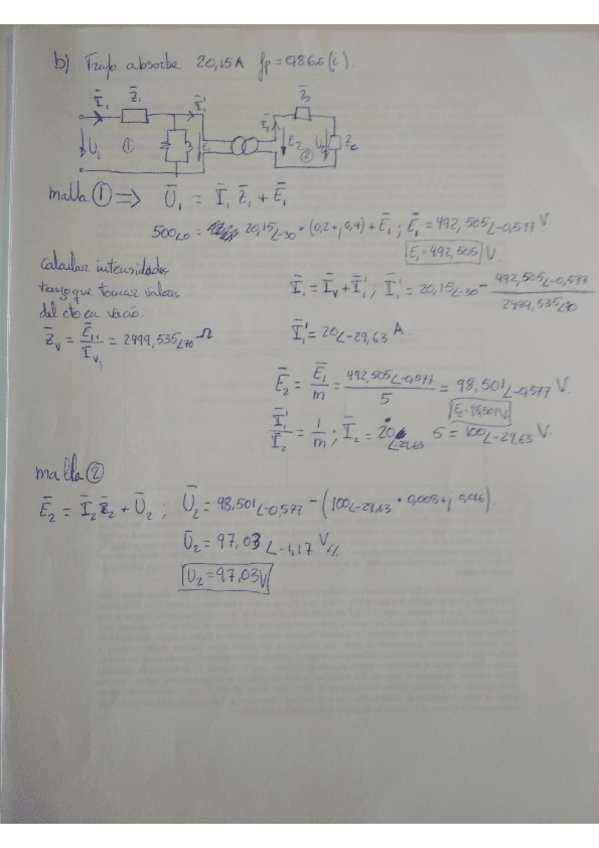 b) Trafo absorbe 20,15A fp=0,866(i).
I̅₁ Z̅₁ I̅₁' I̅₂ Z̅₂
U̅₁ ① E̅₁ E̅₂ ② U̅₂ Z̅c
malla ① ⇒ U̅₁ = I̅₁ Z̅₁ + E̅₁
500∠0 = 20,15∠-30 · (0,2+j0,4) + E̅₁ ; E̅₁ = 492,505∠-0,577 V.
E₁=492,505 V.
Calcular intensidades
tengo que tomar valores
del cto en vacío.
Z̅v = E̅₁ᵥ / I̅v₁ = 2499,535∠70 Ω
I̅₁ = I̅v + I̅₁' ; I̅₁' = 20,15∠-30 - 492,505∠-0,577 / 2499,535∠70
I̅₁' = 20∠-29,63 A.
E̅₂ = E̅₁ / m = 492,505∠-0,577 / 5 = 98,501∠-0,577 V.
E₂=98,501V
I̅₁' / I̅₂ = 1 / m ; I̅₂ = 20∠-29,63 · 5 = 100∠-29,63 V.
malla ②
E̅₂ = I̅₂ Z̅₂ + U̅₂ ; U̅₂ = 98,501∠-0,577 - (100∠-29,63 · 0,008+j0,016).
U̅₂ = 97,03∠-1,17 V//
U₂=97,03V